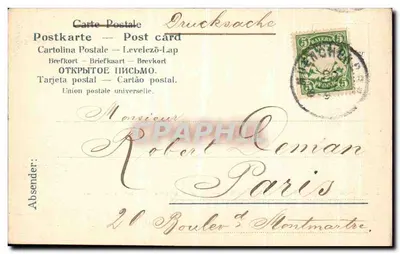 Carte Postale
Drucksache
Postkarte — Post card
Cartolina Postale — Levelező-Lap
Brefkort — Briefkaart — Brevkort
ОТКРЫТОЕ ПИСЬМО.
Tarjeta postal — Cartão postal.
Union postale universelle.
5 BAYERN 5
Monsieur
Robert Coman
Paris
20 Boulevd Montmartre
Absender: